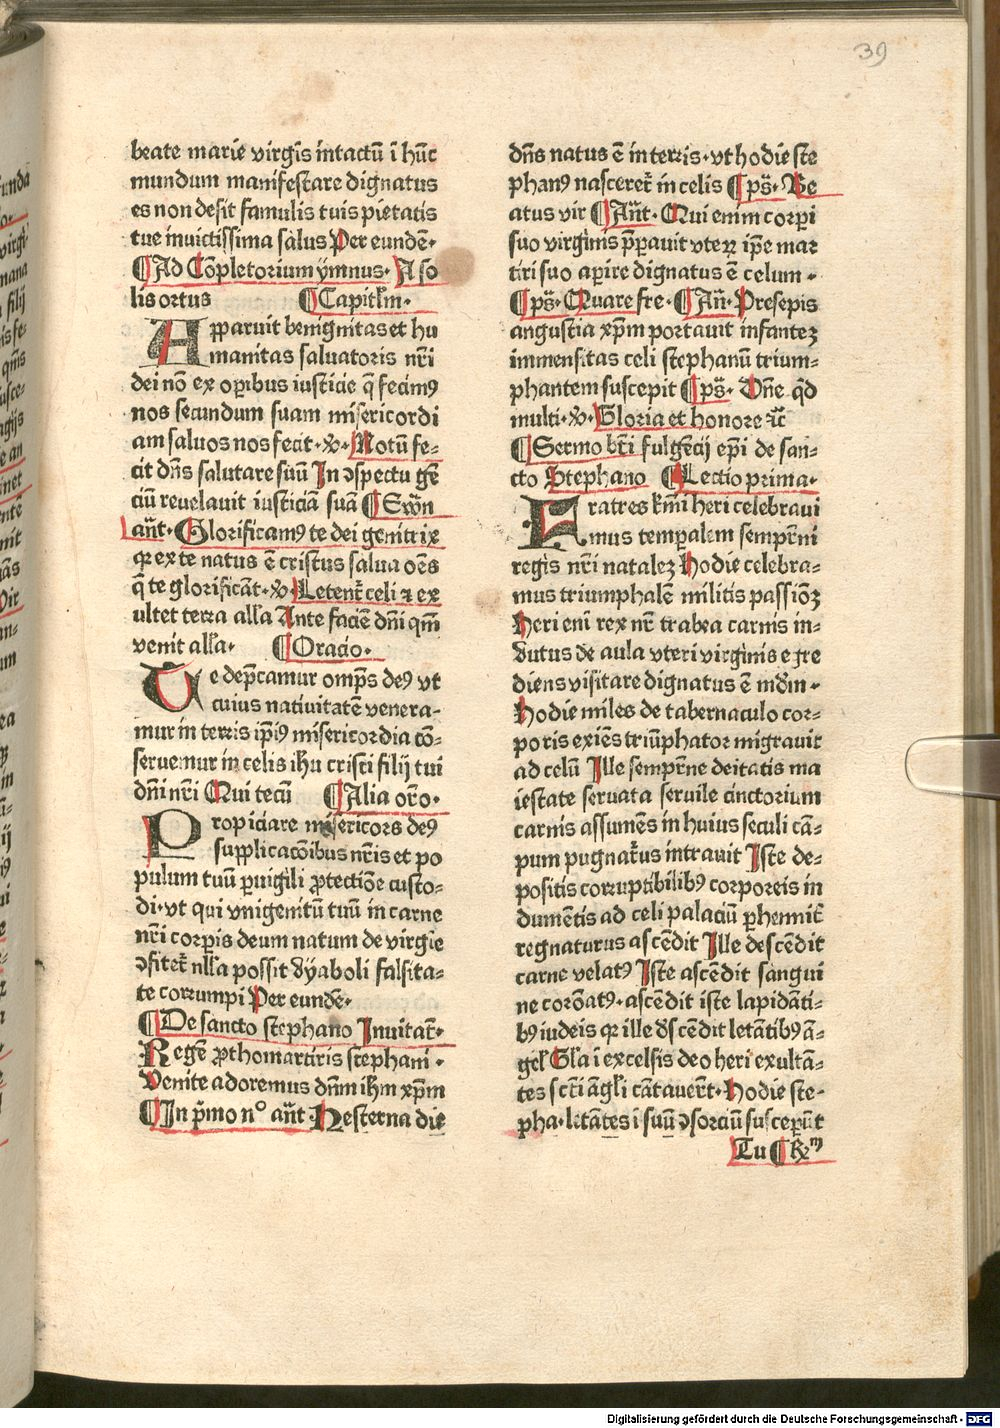 39
beate marie virgīs intactū ī hūc
mundum manifestare dignatus
es non desit famulis tuis pietatis
tue inuictissima salus Per eundē·
¶Ad Cōpletorium ymnus· A so
lis ortus ¶Capitl̄m·
Apparuit benignitas et hu
manitas saluatoris nr̄i
dei nō ex oꝑibus iusticie q̄ fecimꝰ
nos secundum suam misericordi
am saluos nos fecit· v̄· Notū fe⸗
cit dn̄s salutare suū In ꝯspectu gē
ciū reuelauit iusticiā suā ¶Sup̄ n̄
an̄t· Glorificamꝰ te dei genitrix
qꝛ ex te natus ē cristus salua oēs
q̄ te glorificāt· v̄· Letent̄ celi ⁊ ex
ultet terra all'a Ante faciē dn̄i qm̄
venit all'a· ¶Oracio·
Te dep̄camur omp̄s deꝰ vt
cuius natiuitatē venera⸗
mur in terris ip̄iꝰ misericordia cō⸗
seruemur in celis ih̄u cristi filij tui
dn̄i nr̄i Qui tecū ¶Alia or̄o·
Propiciare misericors deꝰ
supplicacōibus nr̄is et po
pulum tuū ꝑuigili ꝓtectiōe custo⸗
di· vt qui vnigenitū tuū in carne
nr̄i corꝑis deum natum de virgīe
ꝯfitet̄ nll'a possit dyaboli falsita⸗
te corrumpi Per eundē·
¶De sancto stephano Inuitat̄·
Regē ꝓthomartiris stephani·
Venite adoremus dn̄m ih̄m xp̄m
¶In p̄mo n° an̄t Hesterna die
dn̄s natus ē in terris· vt hodie ste
phanꝰ nasceret̄ in celis ¶ps̄· Be
atus vir ¶An̄t· Qui enim corꝑi
suo virginis p̄parauit vteꝝ ip̄e mar
tiri suo aꝑire dignatus ē celum·
¶ps̄· Quare fre· ¶An̄· Presepis
angustia xp̄m portauit infantez
immensitas celi stephanū trium⸗
phantem suscepit ¶ps̄· Dn̄e qd̄
multi· v̄· Gloria et honore ⁊c̄
¶Sermo bt̄i fulgēcij ep̄i de san⸗
cto Stephano ¶Lectio prima·
Fratres kr̄mi heri celebraui
mus temꝑalem sempit̄ni
regis nr̄i natalez Hodie celebra⸗
mus triumphalē militis passiōꝫ
Heri eni rex nr̄ trabea carnis in⸗
dutus de aula vteri virginis egre
diens visitare dignatus ē mūdm·
Hodie miles de tabernaculo cor⸗
poris exiēs triūphator migrauit
ad celū Ille sempit̄ne deitatis ma
iestate seruata seruile cinctorium
carnis assumēs in huius seculi cā⸗
pum pugnatur̄us intrauit Iste de⸗
positis corruptibilibꝰ corporeis in
dumētis ad celi palaciū ꝑhennit̄
regnaturus ascēdit Ille descēdit
carne velatꝰ Iste ascēdit sangui
ne corōatꝰ· ascēdit iste lapidāti⸗
bꝰ iudeis qꝛ ille dscēdit letātibꝰ ā⸗
gel' Gl'a ī excelsis deo heri exultā⸗
tes sct̄i āgl'i cātauer̄t· Hodie ste⸗
pha· letātes ī suū ꝯsorciū susceper̄t
Tu ¶℟m
Digitalisierung gefördert durch die Deutsche Forschungsgemeinschaft - DFG